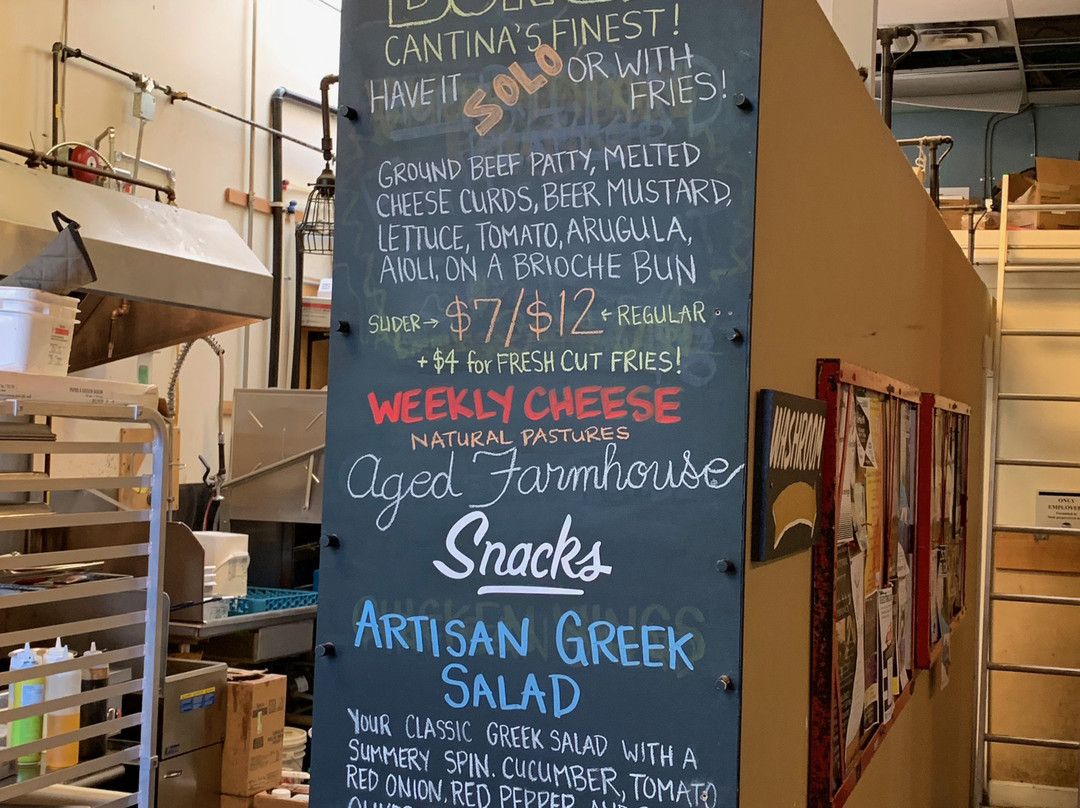 CANTINA'S FINEST!
HAVE IT SOLO OR WITH
FRIES!
GROUND BEEF PATTY, MELTED
CHEESE CURDS, BEER MUSTARD,
LETTUCE, TOMATO, ARUGULA,
AIOLI, ON A BRIOCHE BUN
SLIDER → $7/$12 ← REGULAR
+$4 for FRESH CUT FRIES!
WEEKLY CHEESE
NATURAL PASTURES
Aged Farmhouse
Snacks
CHICKEN WINGS
ARTISAN GREEK
SALAD
YOUR CLASSIC GREEK SALAD WITH A
SUMMERY SPIN. CUCUMBER, TOMATO
RED ONION, RED PEPPER, AND
WASHROOM
ONLY
EMPLOYEES